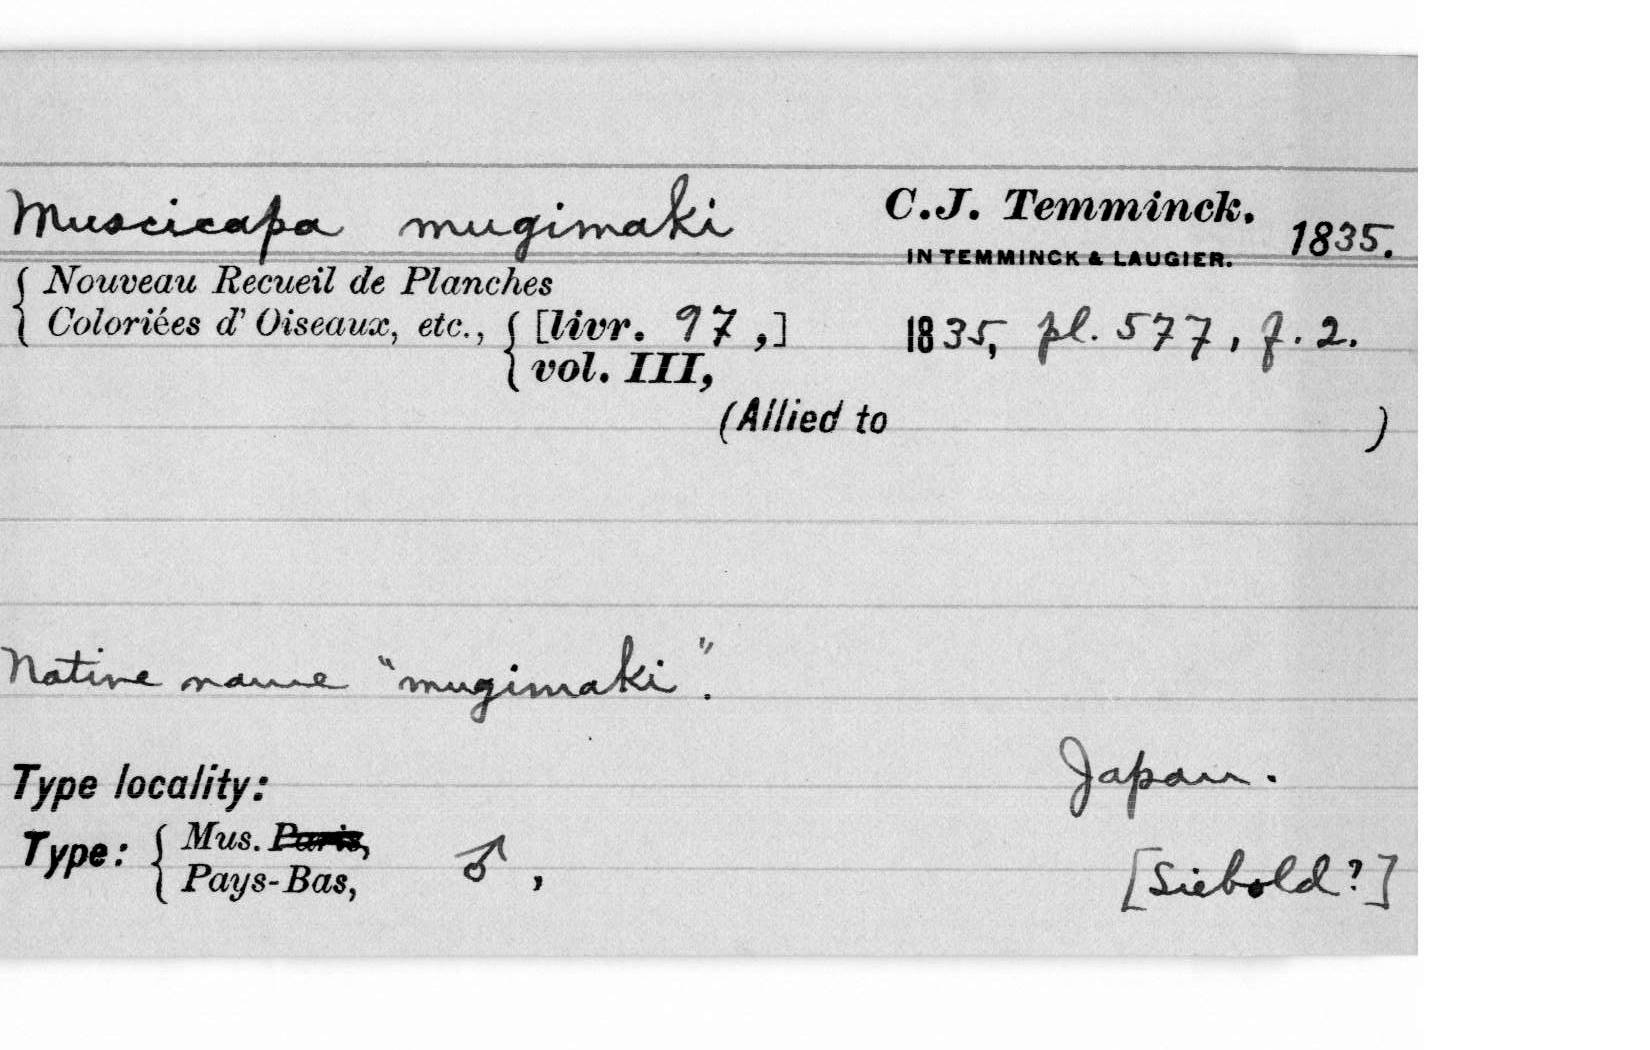 Muscicapa mugimaki C.J. Temminck. 1835.
IN TEMMINCK & LAUGIER.
Nouveau Recueil de Planches
Coloriées d' Oiseaux, etc., [livr. 97,] 1835, pl. 577, f. 2.
vol. III,
(Allied to )
Native name "mugimaki".
Type locality: Japan.
Type: Mus. Paris, ♂, [Siebold?]
Pays-Bas,